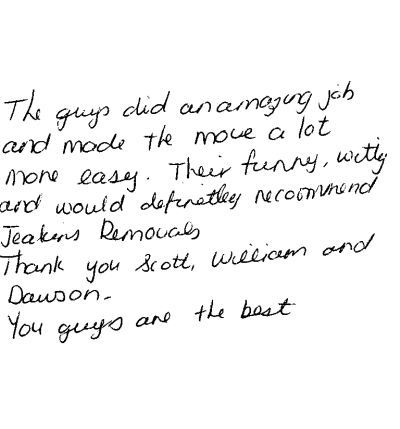 The guys did an amazing job
and made the move a lot
more easy. Their funny, witty
and would definetley recommend
Jeakins Removals
Thank you Scott, William and
Dawson.
You guys are the best